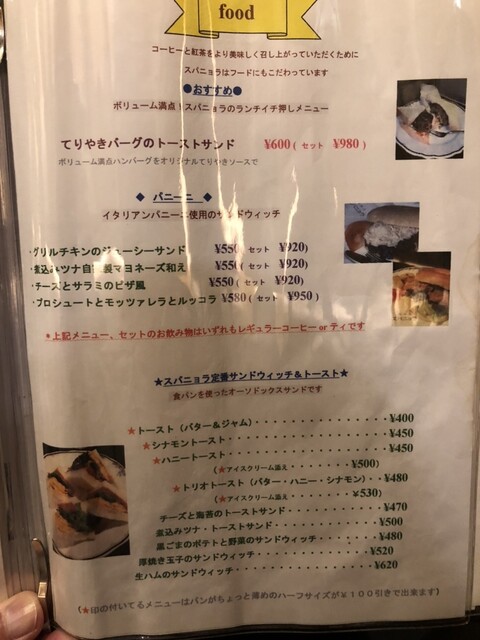 food
コーヒーと紅茶をより美味しく召し上がっていただくために
スパニョラはフードにもこだわっています
●おすすめ●
ボリューム満点！スパニョラのランチイチ押しメニュー
てりやきバーグのトーストサンド ¥600 ( セット ¥980 )
ボリューム満点ハンバーグをオリジナルてりやきソースで
◆ パニーニ ◆
イタリアンパニーニ使用のサンドウィッチ
・グリルチキンのジューシーサンド ¥550 ( セット ¥920)
・煮込みツナ自家製マヨネーズ和え ¥550 ( セット ¥920)
・チーズとサラミのピザ風 ¥550 ( セット ¥920)
・プロシュートとモッツァレラとルッコラ ¥580 ( セット ¥950 )
*上記メニュー、セットのお飲み物はいずれもレギュラーコーヒー or ティです
★スパニョラ定番サンドウィッチ＆トースト★
食パンを使ったオーソドックスサンドです
★トースト（バター＆ジャム）・・・・・・・・・・・・・・¥400
★シナモントースト・・・・・・・・・・・・・・・・¥450
★ハニートースト・・・・・・・・・・・・・・・・・¥450
(★アイスクリーム添え・・・・・・・・¥500)
★トリオトースト（バター・ハニー・シナモン）・・¥480
(★アイスクリーム添え・・・・・・・・¥530)
チーズと海苔のトーストサンド・・・・・・・・・¥470
煮込みツナ・トーストサンド・・・・・・・・・・¥500
黒ごまのポテトと野菜のサンドウィッチ・・・・・・¥480
厚焼き玉子のサンドウィッチ・・・・・・・・・・・¥520
生ハムのサンドウィッチ・・・・・・・・・・・・・¥620
(★印の付いてるメニューはパンがちょっと薄めのハーフサイズが¥100引きで出来ます)